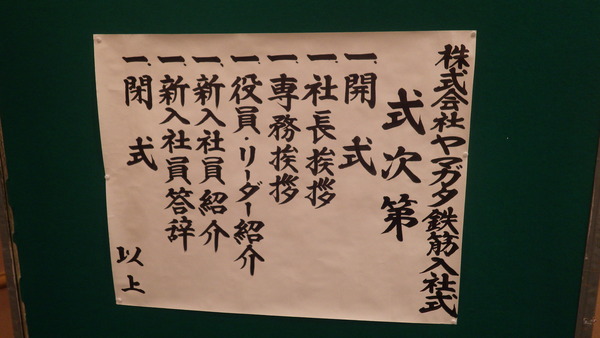 株式会社ヤマガタ鉄筋入社式
式次第
一、開式
一、社長挨拶
一、専務挨拶
一、役員・リーダー紹介
一、新入社員紹介
一、新入社員答辞
一、閉式
以上